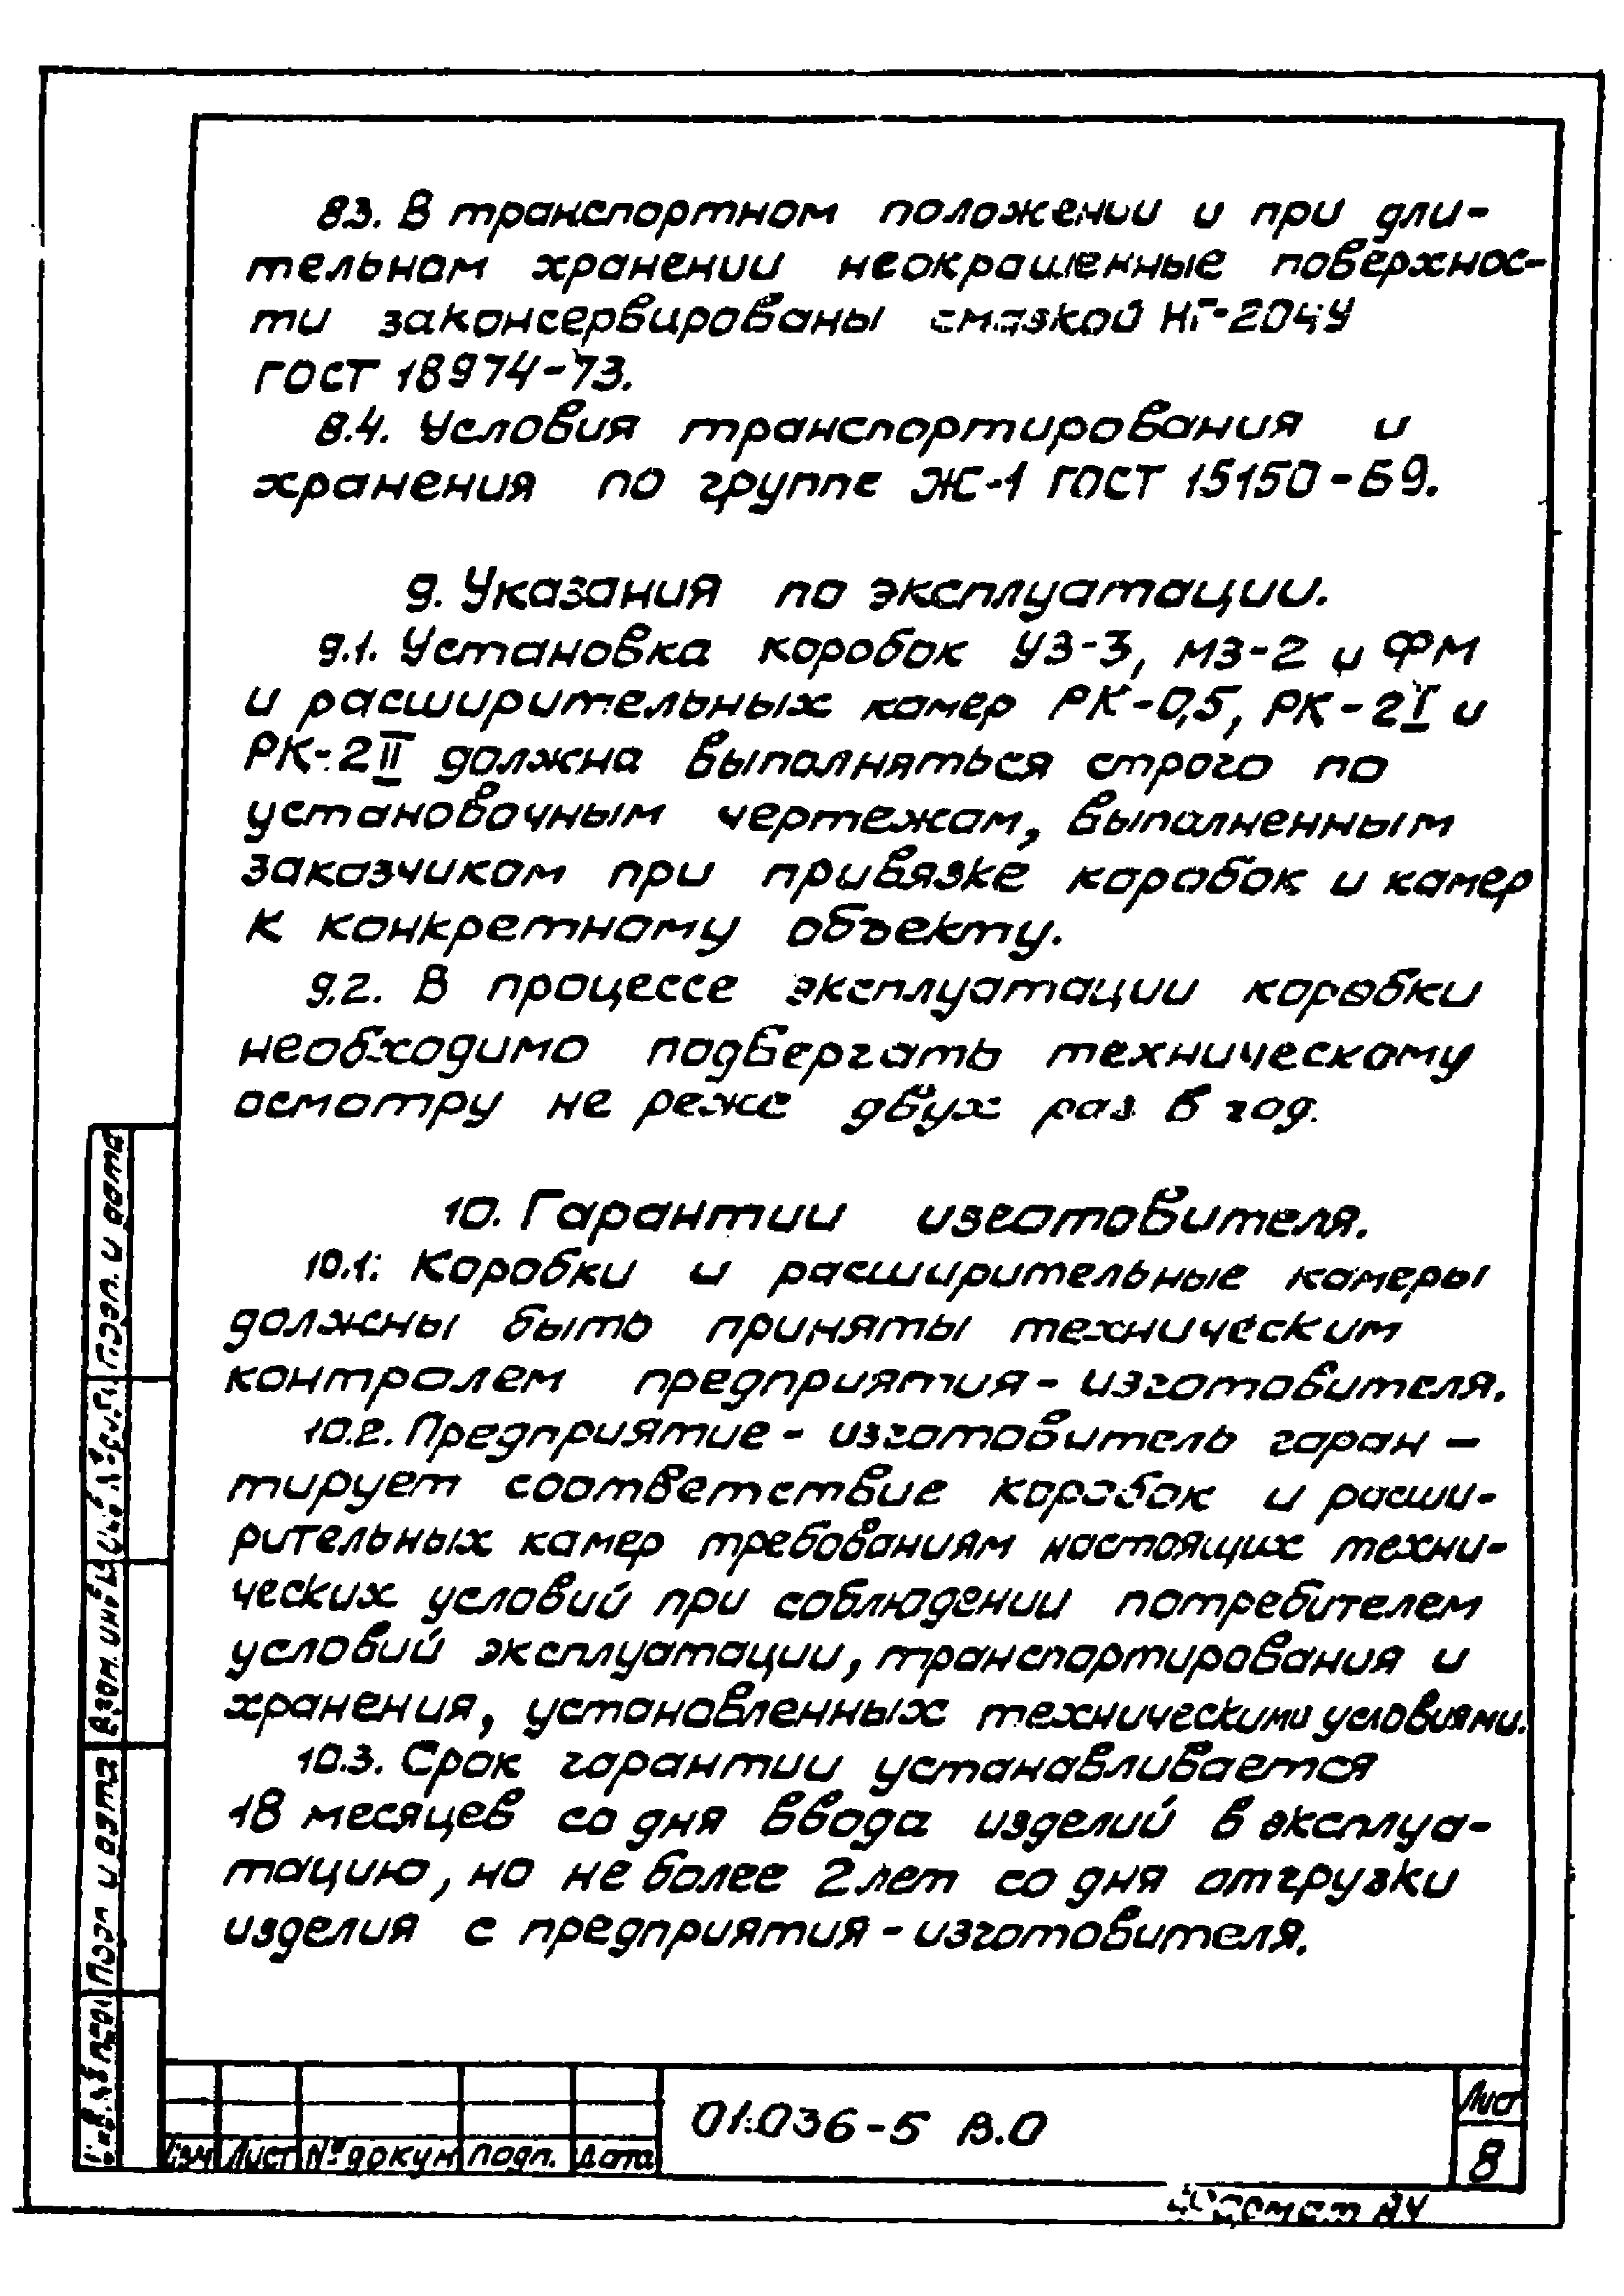 8.3. В транспортном положении и при дли-
тельном хранении неокрашенные поверхнос-
ти законсервированы смазкой НГ-204У
ГОСТ 18974-73.
8.4. Условия транспортирования и
хранения по группе Ж-1 ГОСТ 15150-69.
9. Указания по эксплуатации.
9.1. Установка коробок УЗ-3, МЗ-2 и ФМ
и расширительных камер РК-0,5, РК-2I и
РК-2II должна выполняться строго по
установочным чертежам, выполненным
заказчиком при привязке коробок и камер
к конкретному объекту.
9.2. В процессе эксплуатации коробки
необходимо подвергать техническому
осмотру не реже двух раз в год.
10. Гарантии изготовителя.
10.1. Коробки и расширительные камеры
должны быть приняты техническим
контролем предприятия-изготовителя.
10.2. Предприятие-изготовитель гаран-
тирует соответствие коробок и расши-
рительных камер требованиям настоящих техни-
ческих условий при соблюдении потребителем
условий эксплуатации, транспортирования и
хранения, установленных техническими условиями.
10.3. Срок гарантии устанавливается
18 месяцев со дня ввода изделий в эксплуа-
тацию, но не более 2 лет со дня отгрузки
изделия с предприятия-изготовителя.
Подп. и дата
Взам. инв. №
Подп и дата
Изм Лист № докум Подп. Дата
01.036-5 В.О
Лист
8
Формат А4